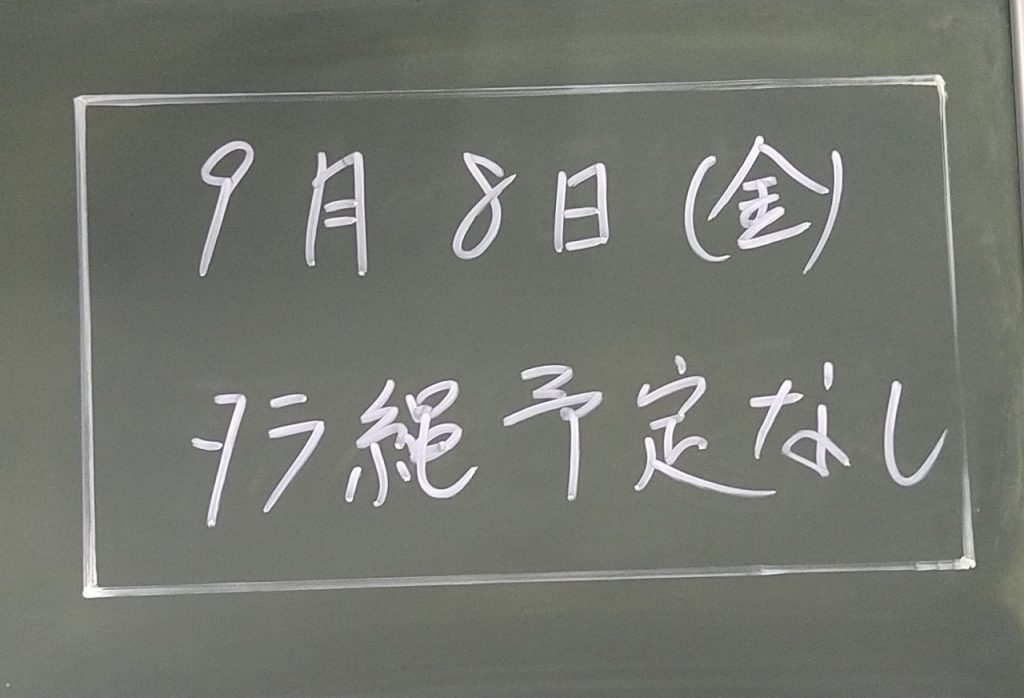 9月8日(金)
タラ縄予定なし